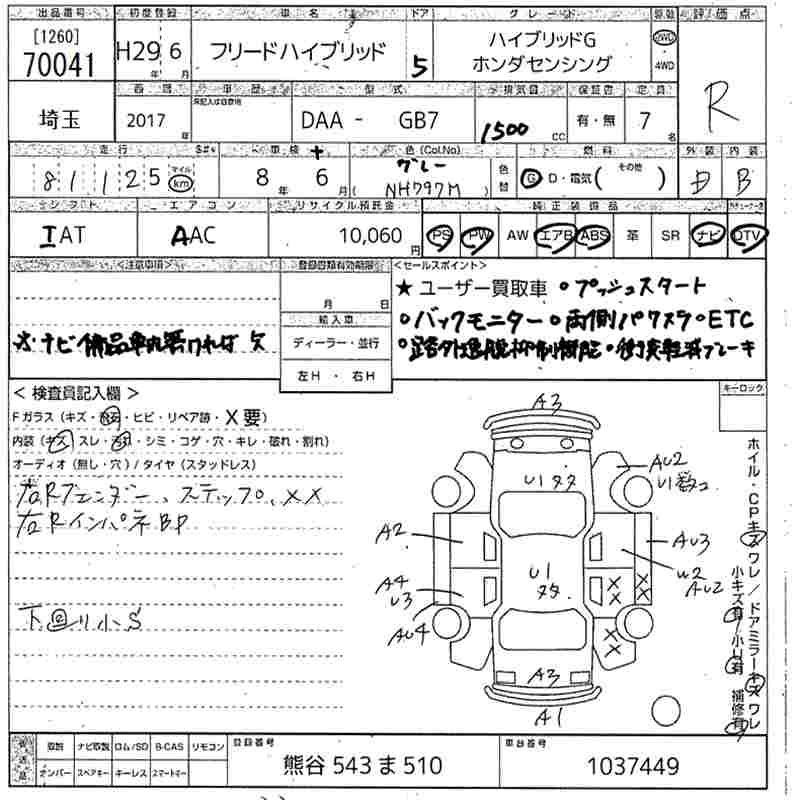 出品番号 初度登録 車名 ドア グレード 駆動 評価点
[1260]
70041 H29年 6月 フリードハイブリッド 5 ハイブリッドG
ホンダセンシング 2WD
4WD R
埼玉 西暦 車歴 型式 排気量 保証書 定員
2017年 DAA - GB7 1500cc 有・無 7名
走行 車検 色(Col.No) 燃料 外装 内装
81125 マイル km 8年 6月 グレー
(NH797M) 色替 G D・電気( その他 ) D B
シフト エアコン リサイクル預託金 純正装備品
IAT AAC 10,060円 PS PW AW エアB ABS 革 SR ナビ DTV
<注意事項> 登録書類有効期限 <セールスポイント>
月 日 ★ユーザー買取車 ・プッシュスタート
輸入車 ・バックモニター ・両側パワスラ ・ETC
ディーラー・並行 ・路外逸脱抑制機能 ・衝突軽減ブレーキ
左H・右H
<検査員記入欄> キーロック
Fガラス(キズ・飛石・ヒビ・リペア跡・X要)
内装(キズ・スレ・汚れ・シミ・コゲ・穴・キレ・破れ・割れ)
オーディオ(無し・穴)/タイヤ(スタッドレス)
右Rフェンダー、ステップ、XX
右RインパネBP
下回り小S
A3
U1 タタ
AU2
U1数コ
A2
AU3
U1
タタ
W2
AU2
A4
U3
XX
XX
AU4
XX
A3
A1
ホイル・CPキズワレ/ドアミラーキズワレ
小キズ有/小U有 補修有
取説 ナビ取説 ロム/SD B-CAS リモコン 登録番号 車台番号
ナンバー スペアキー キーレス スマートキー 熊谷 543 ま 510 1037449